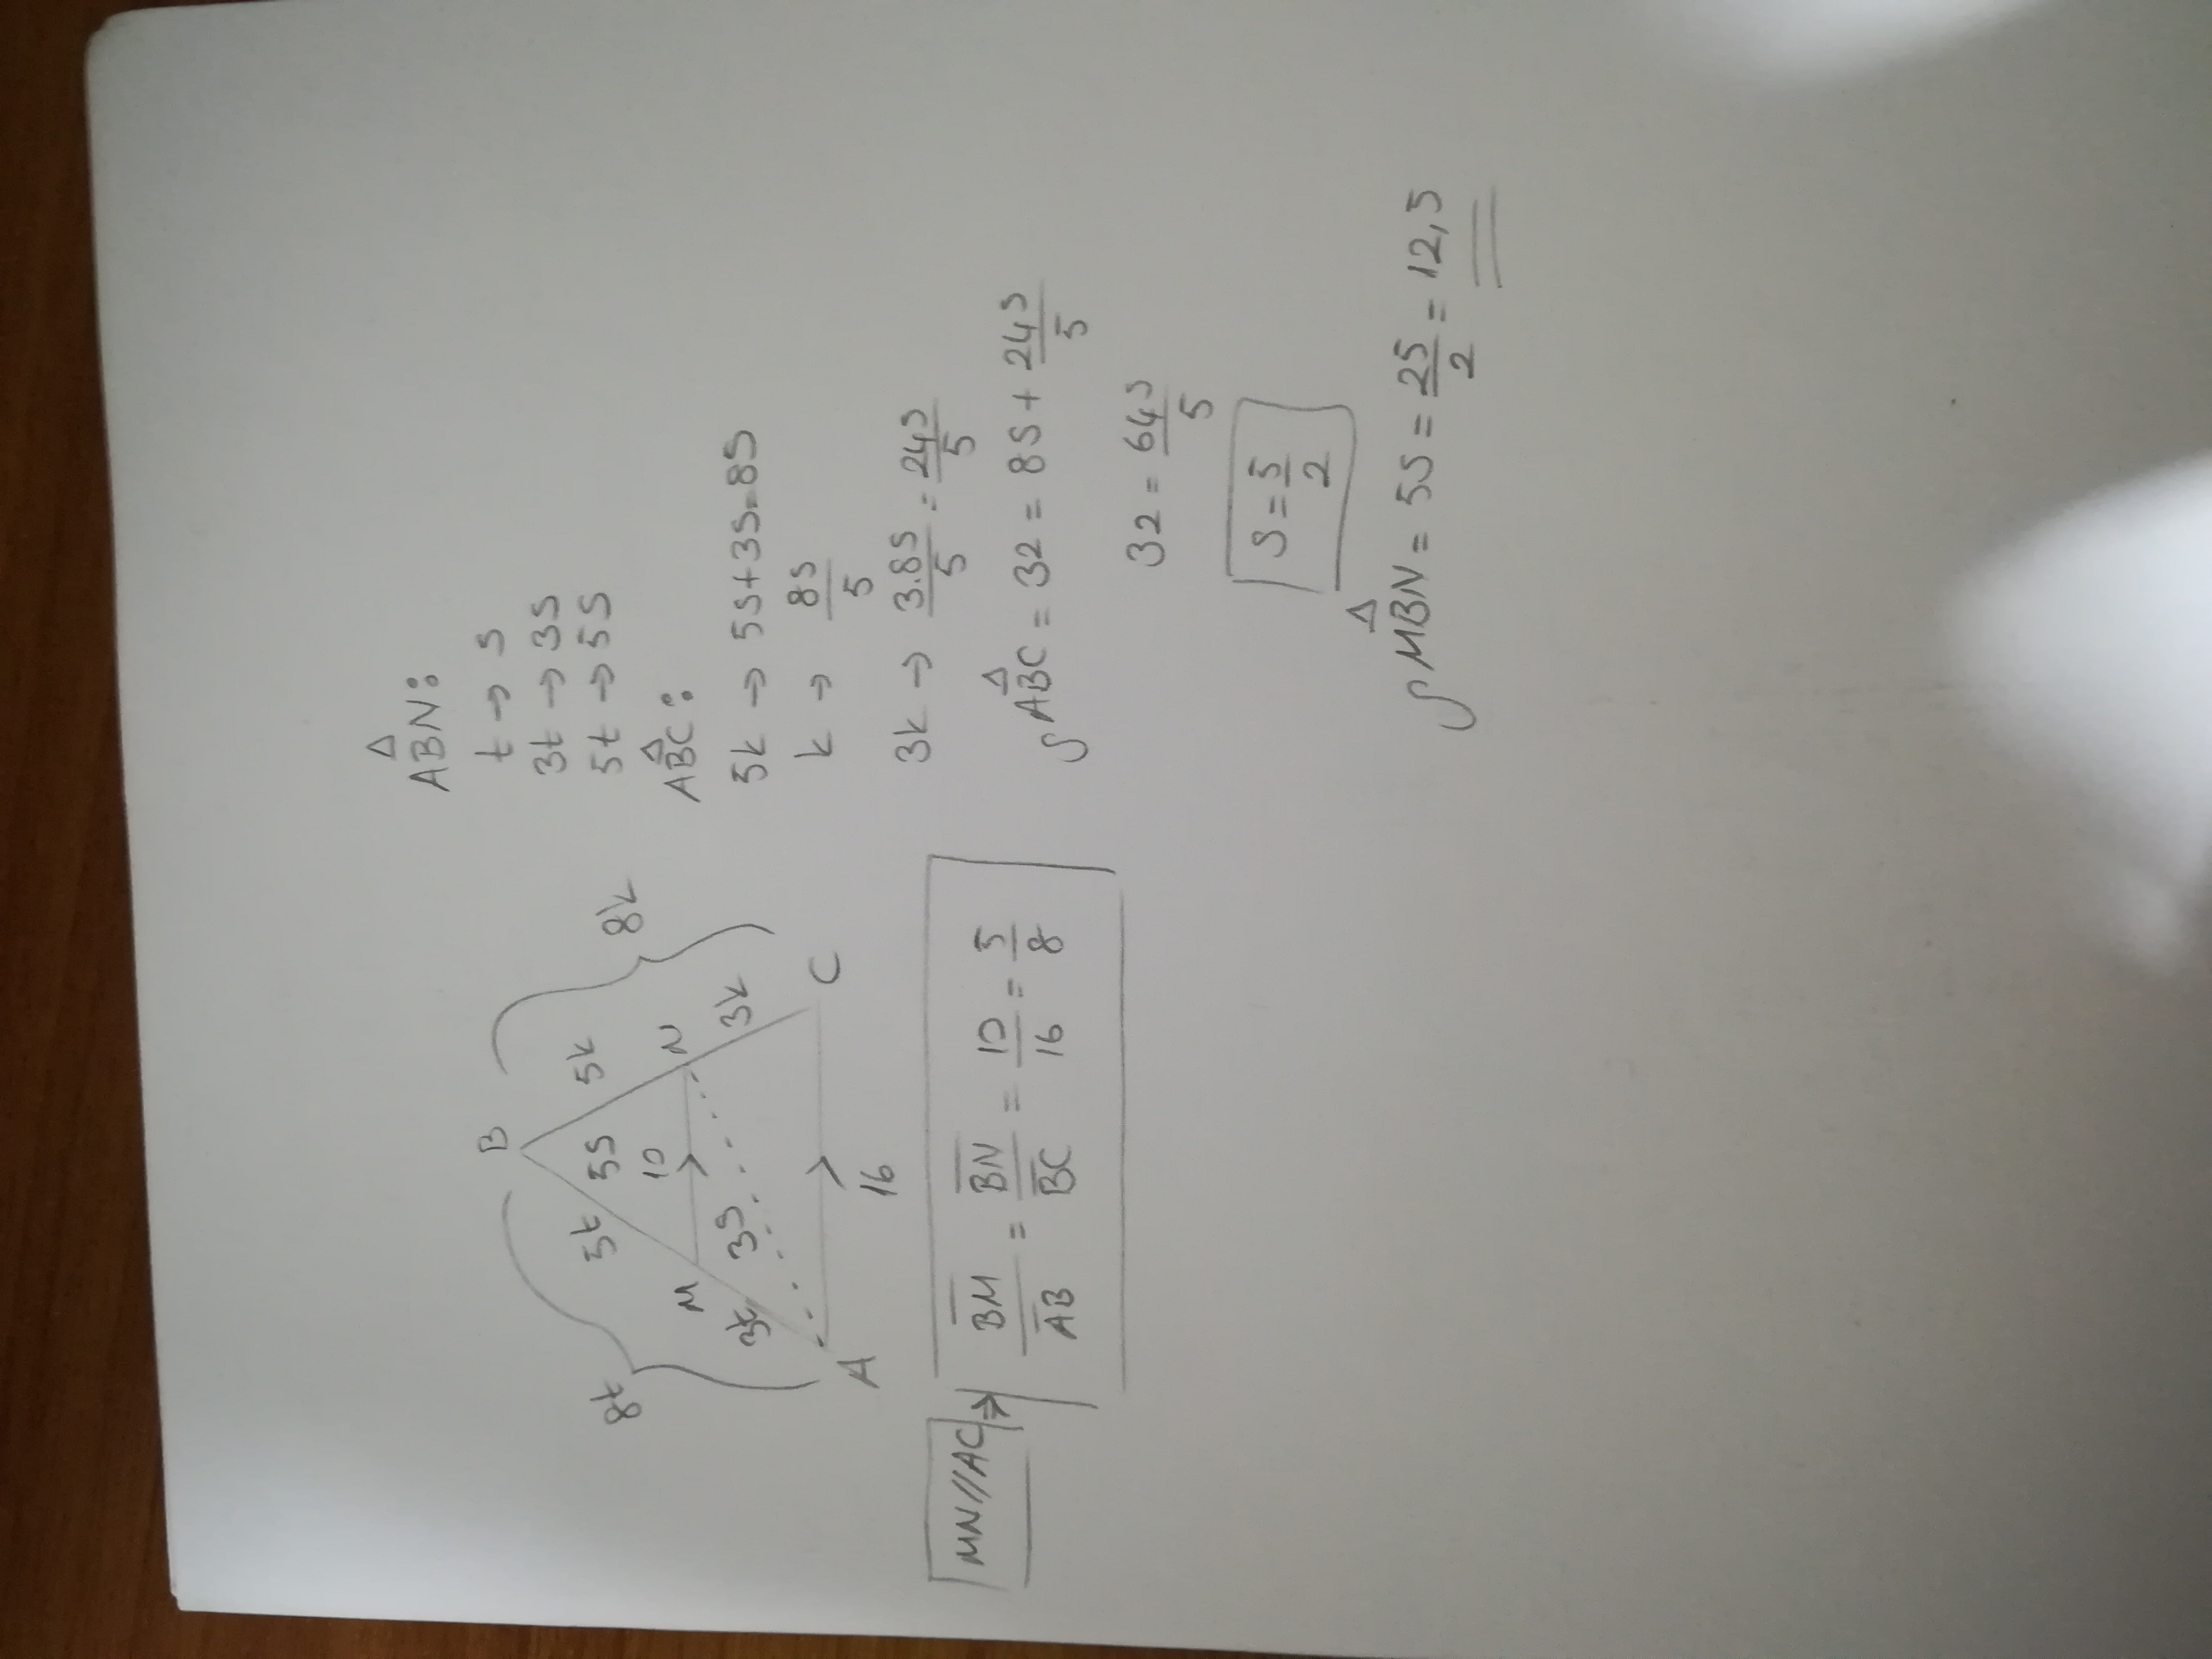 B
8t
5t
5S
5k
8k
10
M
N
3t
3S
3k
A
C
16
MN//AC ⇒ BM/AB = BN/BC = 10/16 = 5/8
ABN:
t → S
3t → 3S
5t → 5S
ABC:
5k → 5S+3S=8S
k → 8S/5
3k → 3.8S/5 = 24S/5
S ABC = 32 = 8S + 24S/5
32 = 64S/5
S = 5/2
S MBN = 5S = 25/2 = 12,5